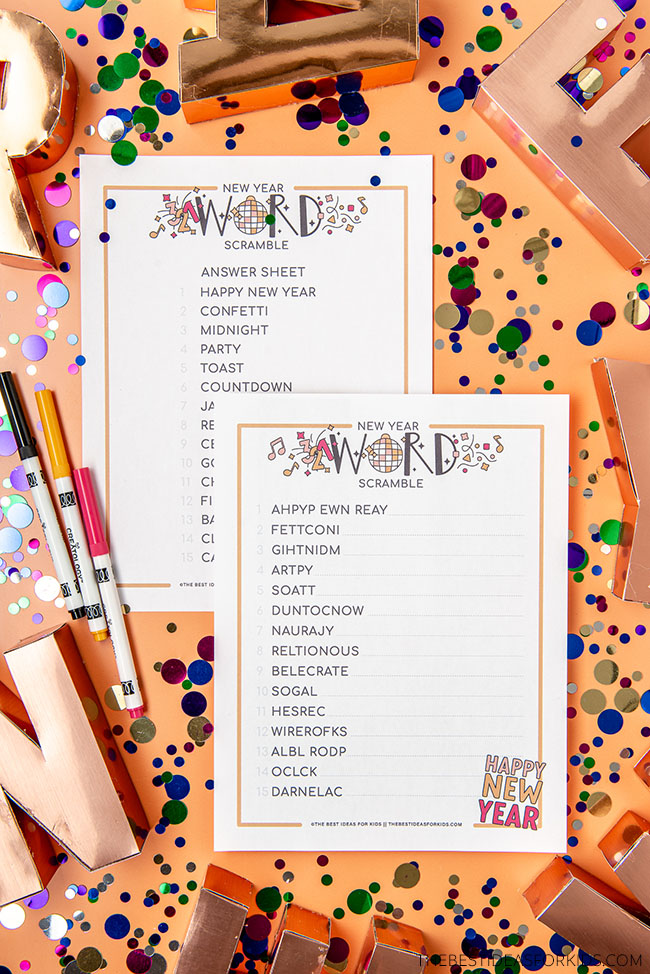 NEW YEAR
WORD
SCRAMBLE
ANSWER SHEET
1 HAPPY NEW YEAR
2 CONFETTI
3 MIDNIGHT
4 PARTY
5 TOAST
6 COUNTDOWN
7 JA
8 RE
9 CE
10 GO
11 CH
12 FI
13 BA
14 CL
15 CA
©THE BEST IDEAS
NEW YEAR
WORD
SCRAMBLE
1 AHPYP EWN REAY
2 FETTCONI
3 GIHTNIDM
4 ARTPY
5 SOATT
6 DUNTOCNOW
7 NAURAJY
8 RELTIONOUS
9 BELECRATE
10 SOGAL
11 HESREC
12 WIREROFKS
13 ALBL RODP
14 OCLCK
15 DARNELAC
HAPPY
NEW
YEAR
©THE BEST IDEAS FOR KIDS || THEBESTIDEASFORKIDS.COM
CREATOLOGY
THEBESTIDEASFORKIDS.COM